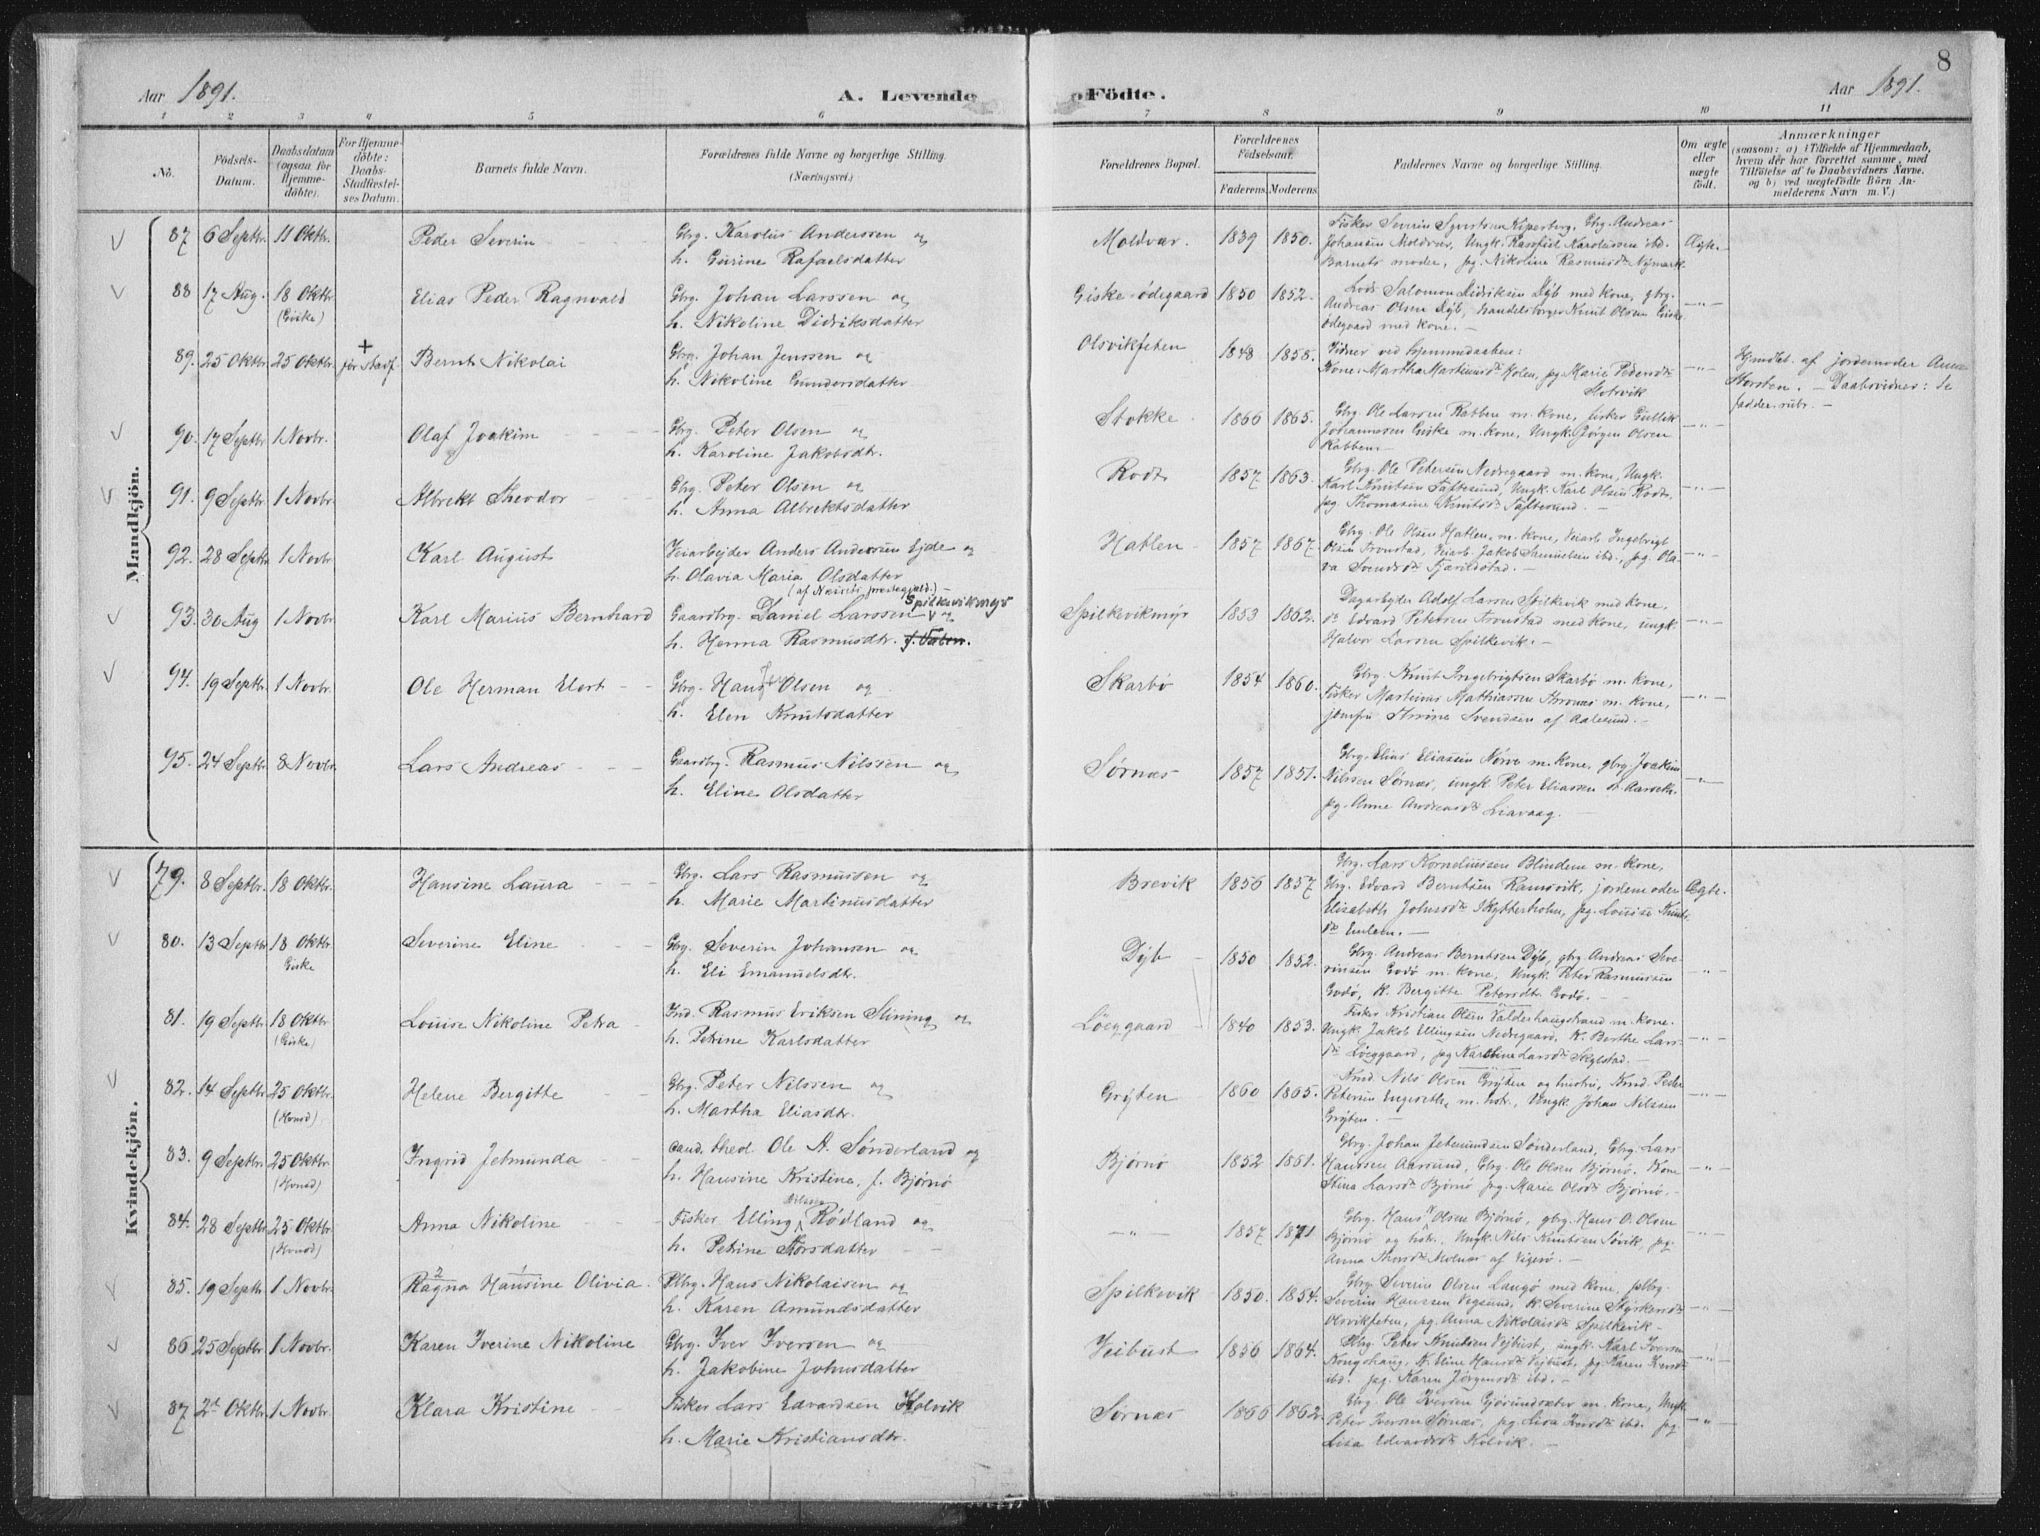 8
Aar 1891.
A. Levende
Födte.
Aar 1891.
1 2 3 4 5 6 7 8 9 10 11
No.
Födsels-Datum.
Daabsdatum (ogsaa for Hjemme-döbte).
For Hjemme-döbte: Daabs-Stadfæstel-ses Datum.
Barnets fulde Navn.
Forældrenes fulde Navne og borgerlige Stilling.
(Næringsvei.)
Forældrenes Bopæl.
Forældrenes Födselsaar.
Faderens. Moderens.
Faddernes Navne og borgerlige Stilling.
Om ægte eller uægte födt.
Anmærkninger
(saasom: a) i Tilfælde af Hjemmedaab,
hvem der har forrettet samme, med
Tilföielse af to Daabsvidners Navne.
og b) ved uægtefödte Börn An-
melderens Navn m. V.)
Mandkjön.
87 6 Septbr. 11 Oktbr. Peder Severin Gbrg. Karolus Anderssen og
h. Gurine Rafaelsdatter
Moldvær. 1839 1850. Fisker Severin Syvertsen Kipersberg, Gbrg. Andreas
Johansen Moldvær, Ungk. Rasofiel Karolussen ibd.
Barnets moder, pg. Nikoline Rasmusdt. Nymark.
Ægte.
88 17 Aug. 18 Oktbr. (Giske) Elias Peder Ragnvald Gbrg. Johan Larssen og
h. Nikoline Didriksdatter
Giske-ødegaard 1850 1852. Lods Salomon Didriksen Dyb med kone, gbrg.
Andreas Olsen Dyb, handelsborger Knut Olsen Giske
ødegaard med kone. -
-"-
89. 25 Oktbr. 25 Oktbr. + før Stadf. Bernt Nikolai Gbrg. Johan Jenssen og
h. Nikoline Gundersdatter
Olsvikfeten 1848 1855. Vidner ved hjemmedaaben:
Kone Martha Martinusdt. Holen, pg. Marie Pedersdt.
Slotvik
-"-
Hjmdbt. af jordemoder Anne
Horsten. - Daabsvidner: se
fadder-rubr. -
90. 17 Septbr. 1 Novbr. Olaf Joakim Gbrg. Peter Olsen og
h. Karoline Jakobsdtr.
Stokke 1866 1865. Gbrg. Ole Larsen Rabben m. kone, fisker Gullik
Johannessen Giske m. kone, Ungk. Jørgen Olsen
Rabben -
-"-
91. 9 Septbr. 1 Novbr. Albrekt Theodor Gbrg. Peter Olsen og
h. Anna Albrektsdatter
Rødt 1857 1863. Gbrg. Ole Petersen Nedregaard m. kone, Ungk.
Karl Knutsen Taftesund, Ungk. Karl Olsen Rødt,
pg. Thomasine Knutsdt. Taftesund. -
-"-
92. 28 Septbr. 1 Novbr. Karl August Veiarbejder Anders Anderssen Ejde og
h. Olavia Maria Olsdatter
(af Næssets præstegjæld.) -
Hatlen 1857 1867. Gbrg. Ole Olsen Hatlen m. kone, Veiarb. Ingebrigt
Olsen Tronstad, Veiarb. Jakob Samuelsen ibd., pg. Ola-
va Svendsdt. Fjarildstad. -
-"-
93. 30 Aug 1 Novbr. Karl Marius Bernhard Gaardbrg. Daniel Larssen Spilkevikmyr og
h. Henna Rasmusdtr.
Spilkevikmyr 1853 1862. Dagarbejder Adolf Larsen Spilkevik med kone.
do. Edvard Petersen Tronstad med kone, ungk.
Halvor Larsen Spilkevik. -
-"-
94. 19 Septbr. 1 Novbr. Ole Herman Elert Gbrg. Hans Olsen og
h. Elen Knutsdatter
Skarbø 1854 1860. Gbrg. Knut Ingebrigtsen Skarbø m. kone,
fisker Martinus Mathiassen m. kone,
jomfru Svendsen af Aalesund. -
-"-
95. 24 Septbr. 8 Novbr. Lars Andreas Gaardbrg. Rasmus Nilssen og
h. Eline Olsdatter
Sørnæs 1857 1851. Gbrg. Elias Eliassen Nørve m. kone, gbrg. Joakim
Nilssen Sørnæs, ungk. Peter Eliassen Aarseth.
pg. Anne Andreasdt. Leavaag.
-"-
Kvindekjön.
79. 8 Septbr. 18 Oktbr. Hansine Laura Gbrg. Lars Rasmussen og
h. Marie Martinusdatter
Brevik 1856 1857 Gbrg. Lars Korneliussen Blindem m. kone,
Gbrg. Edvard Berntsen Ramsvik, jordemoder
Elisabeth Johnsdt. Skytterholm, pg. Louise Knuts-
dt. Emlem. -
Ægte.
80. 13 Septbr. 18 Oktbr. Giske Severine Eline Gbrg. Severin Johansen og
h. Eli Emanuelsdtr.
Dyb 1850 1852. Gbrg. Andreas Berntsen Dyb, gbrg Andreas Seve-
rinsen Godø m. kone, Ungk. Peter Rasmussen
Godø, K. Bergitte Petersdtr. Godø.
-"-
81. 19 Septbr. 18 Oktbr. (Giske) Louise Nikoline Petra Ind. Rasmus Eriksen Slining og
h. Petrine Karlsdatter
Løeggaard 1840 1853. Fisker Kristian Olsen Valderhaugstrand m. kone.
Ungk. Jakob Ellingsen Nedregaard, K. Berthe Lars-
dt. Løeggaard, pg Karoline Larsdt. Skjelstad. -
-"-
82. 14 Septbr. 25 Oktbr. (Honsd) Helene Bergitte Gbrg. Peter Nilssen og
h. Martha Eliasdtr.
Gryten 1860 1865. Nils Olsen Gryten og hustru, Peder
Petersen Engeseth m. hstr., Ungk. Johan Nilssen
Gryten. -
-"-
83. 9 Septbr. 25 Oktbr. (Honsd) Ingrid Jetmunda cand. theol. Ole A. Sønderland og
h. Hansine Kristine, f. Bjørnø
Bjørnø 1852 1861. Gbrg. Johan Jetmundsen Sønderland, Gbrg. Lars
Hanssen Aarsund, Gbrg. Ole Olsen Bjørnø. Kone
Stina Larsdt. Bjørnø pg. Marie Olsdt. Bjørnø. -
-"-
84. 28 Septbr. 25 Oktbr. (Honsd) Anna Nikoline Fisker Elling Nilssen Rødland og
h. Petrine Torsdatter
-"- 1857 1871 Gbrg. Hans Olsen Bjørnø, gbrg. Hans O. Olsen
Bjørnø og hstr., Ungk. Nils Knutsen Søvik, pg.
Anna Thorsdt. Molnæs af Vigerø. -
-"-
85. 19 Septbr. 1 Novbr. Ragna 2 Hansine 1 Olivia. Gbrg. Hans Nikolaisen og
h. Karen Amundsdatter
Spilkevik 1850. 1854. Gbrg. Severin Olsen Langø med kone, plbg.
Severin Hanssen Vegsund, K. Severine Styrkersdt.
Olsvikfeten, pg. Anna Nikolaisdt. Spilkevik -
-"-
86 25 Septbr. 1 Novbr. Karen Iverine Nikoline Gbrg. Iver Iversen og
h. Jakobine Johnsdatter
Veibust 1856 1864. Gbrg. Peter Knutsen Vejbust, ungk. Karl Iversen
Kongshaug, K. Eline Hansdt. Vejbust, pg. Karen Iversdt.
ibd. pg. Karen Jørgensdt. ibd. -
-"-
87 2n Oktbr. 1 Novbr. Klara Kristine Fisker Lars Edvardsen Kolvik
h. Marie Kristiansdtr.
Sørnæs 1866 1862. Gbrg. Ole Iversen Gjørundsæter m. kone, Ungk.
Peter Iversen Sørnæs, pg. Lisa Iversdt. ibd. pg.
Lisa Edvardsdt. Kolvik. -
-"-